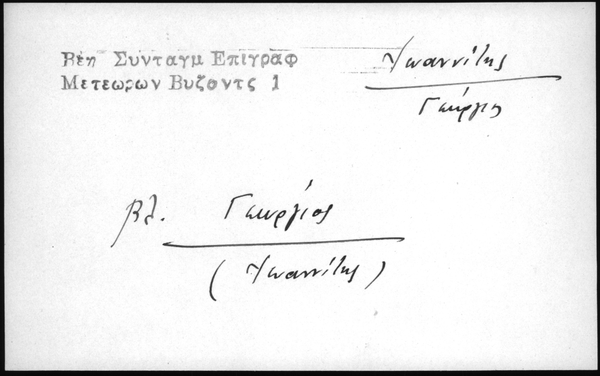 Βέη Συνταγμ Επιγραφ
Μετεωρων Βυζοντς 1
Ἰωαννίτης
Γεώργιος
βλ. Γεώργιος
(Ἰωαννίτης)